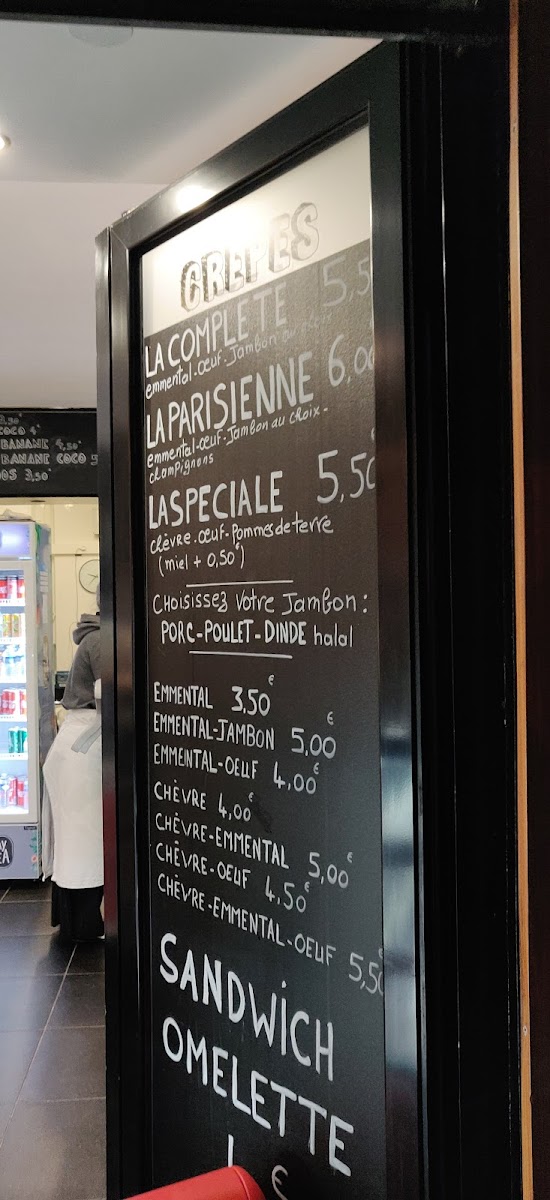 CRÊPES
LA COMPLÈTE 5,5
emmental-œuf-Jambon au choix
LA PARISIENNE 6,00
emmental-œuf-Jambon au choix-
champignons
LA SPECIALE 5,50
chèvre-œuf-Pommes de terre
(miel + 0,50€)
CHoisissez Votre Jambon:
PORC-POULET-DINDE halal
EMMENTAL 3,50€
EMMENTAL-JAMBON 5,00€
EMMEINTAL-OEUF 4,00€
CHÈVRE 4,00€
CHÈVRE-EMMENTAL 5,00€
CHÈVRE-OEUF 4,50€
CHÈVRE-EMMENTAL-OEUF 5,50
SANDWICH
OMELETTE
€
COCO 4€
BANANE 4,50€
BANANE COCO
3,50€